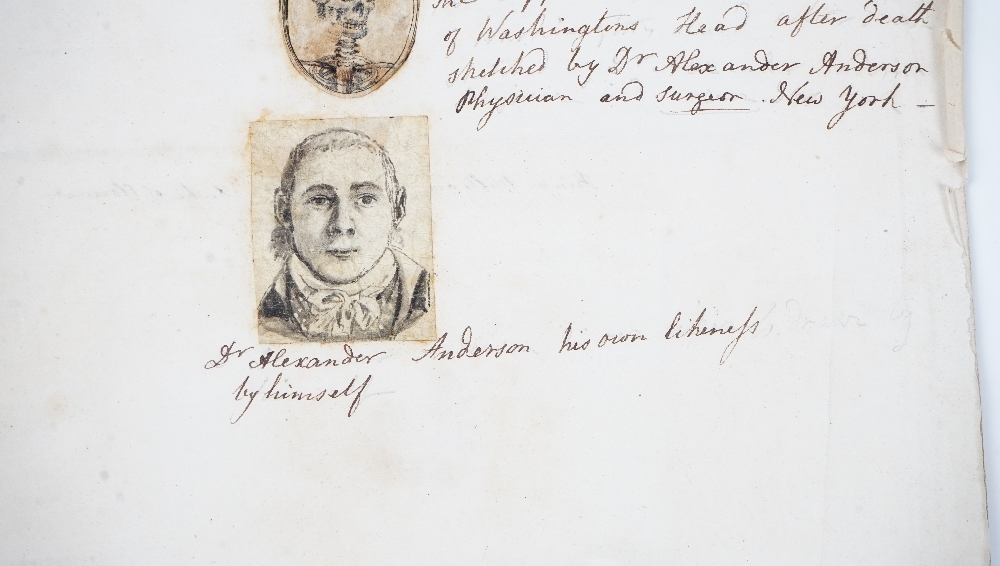 of Washingtons Head after death
sketched by Dr Alexander Anderson
Physician and surgeon. New York —
Dr Alexander Anderson his own likeness
by himself